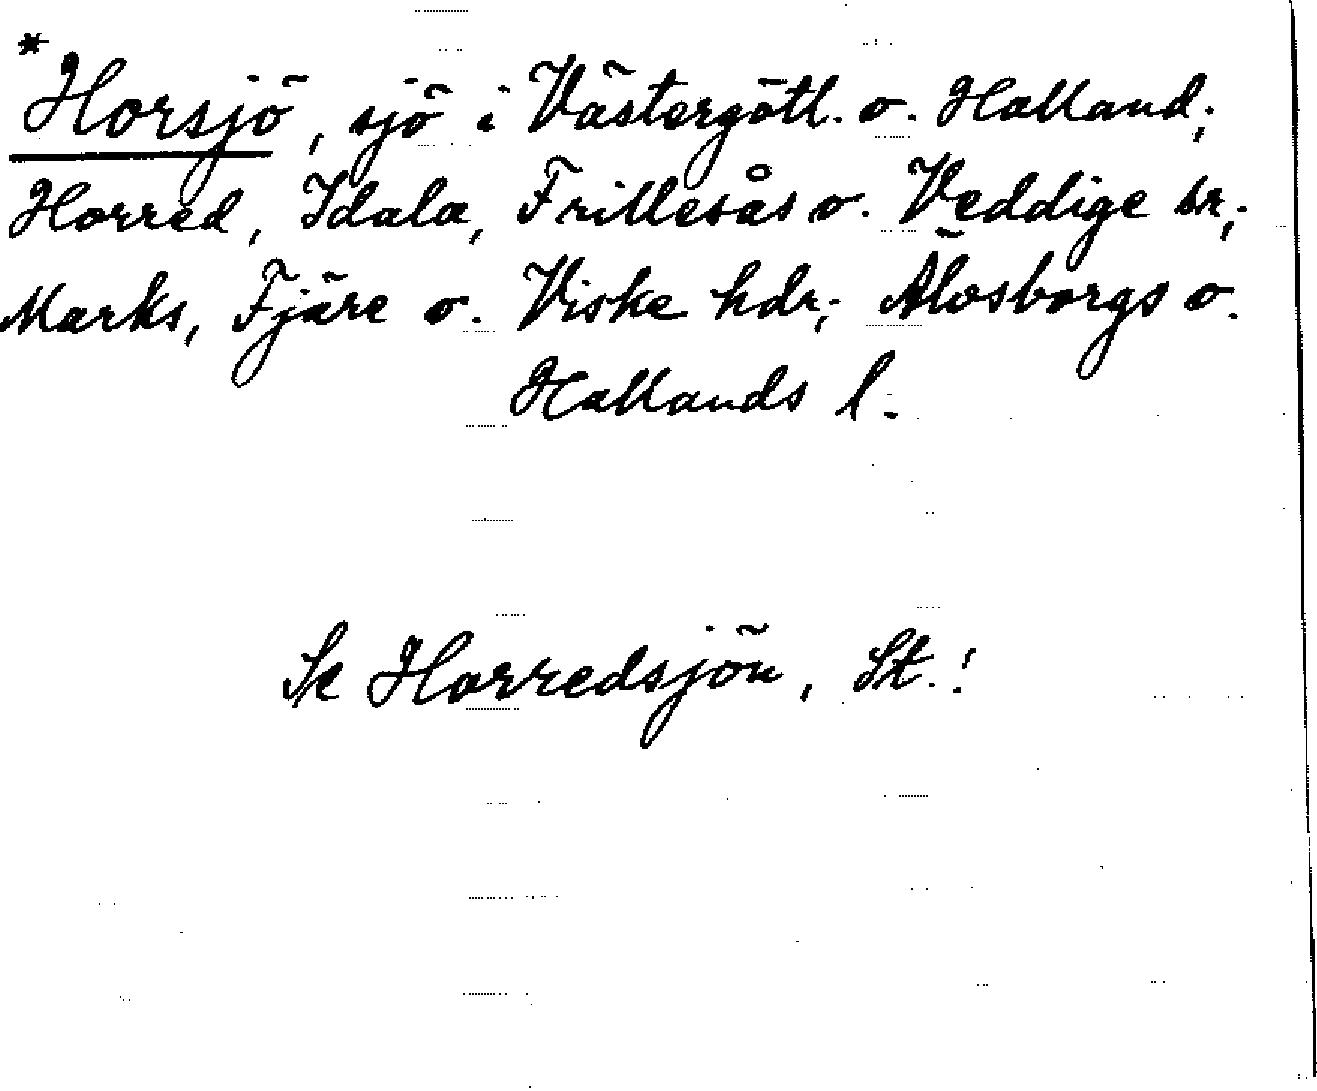 *Horsjö, sjö i Västergötl. o. Halland;
Horred, Idala, Frillesås o. Veddige sr;
Marks, Fjäre o. Viske hdr; Älvsborgs o.
Hallands l.
Se Horredsjön, St.!